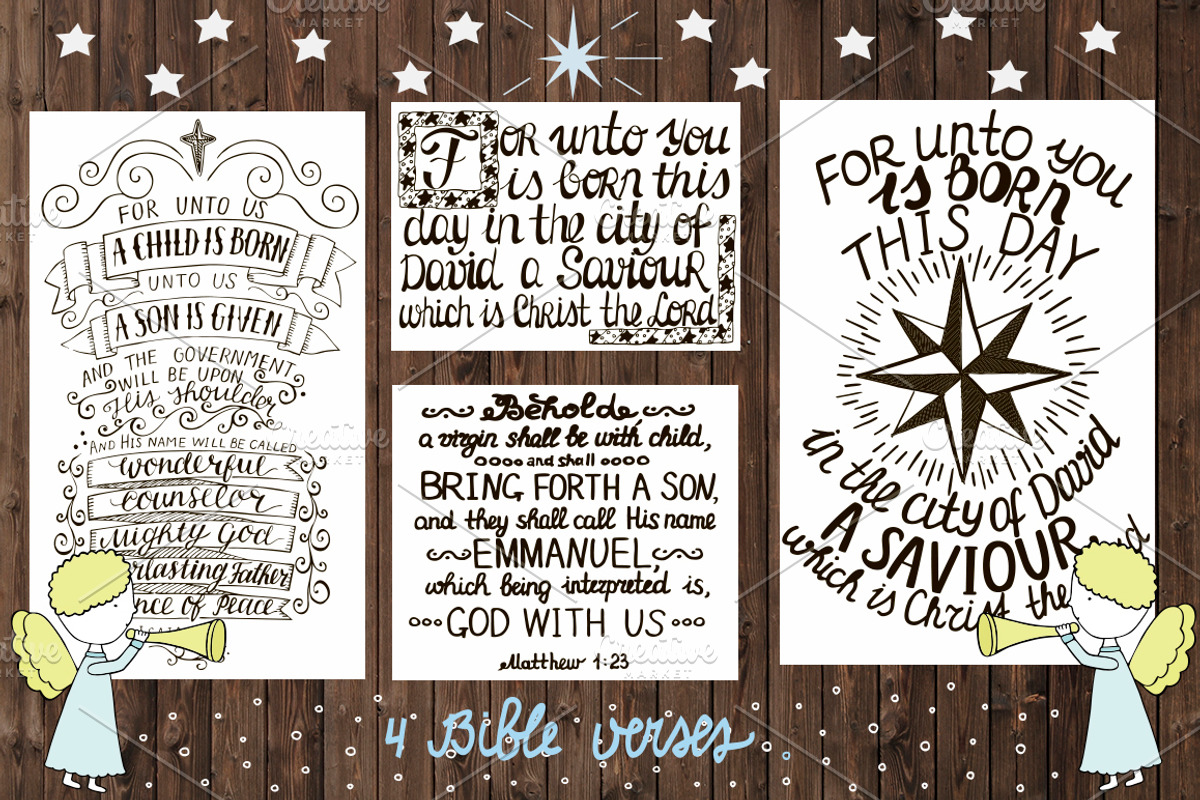 FOR UNTO US
A CHILD IS BORN
UNTO US
A SON IS GIVEN
AND THE GOVERNMENT
WILL BE UPON
His shoulder
AND HIS NAME WILL BE CALLED
wonderful
counselor
Mighty God
erlasting Father
nce of Peace
FOR unto you
is born this
day in the city of
David a Saviour
which is Christ the Lord
Beholde
a virgin shall be with child,
and shall
BRING FORTH A SON,
and they shall call His name
EMMANUEL,
which being interpreted is,
GOD WITH US
Matthew 1:23
FOR unto you
is BORN
THIS DAY
in the city of David
A SAVIOUR
which is Christ the
d
4 Bible verses
Creative
MARKET